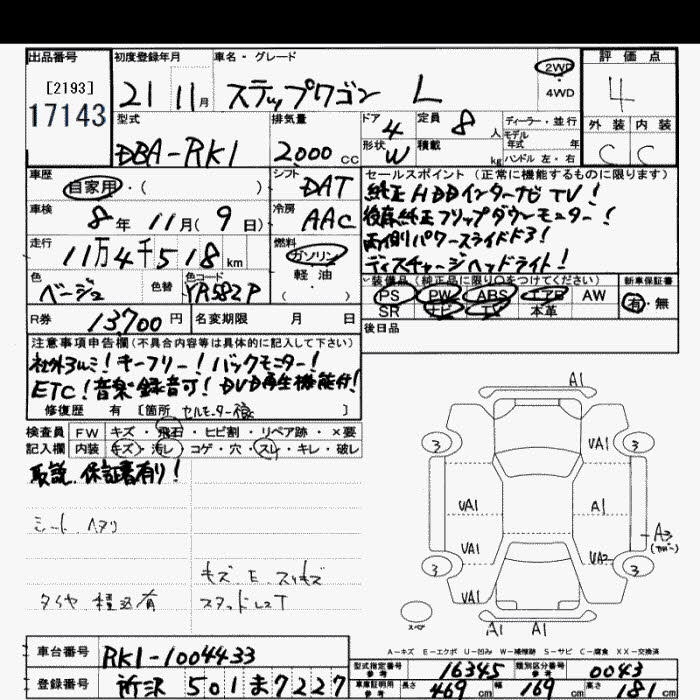 出品番号
[2193]
17143
初度登録年月
21 11月
車名・グレード
ステップワゴン L
2WD
・
4WD
評価点
4
外装 内装
C C
型式
DBA-RK1
排気量
2000 cc
ドア 4
形状 W
定員 8 人
積載 kg
ディーラー・並行
モデル
年式 年
ハンドル 左・右
車歴
自家用・( )
シフト
DAT
車検
8年11月(9日)
冷房
AAC
走行
11万4千518km
燃料
ガソリン
軽油・
( )
色
ベージュ
色替
色コード
YR582P
R券
13,700円
名変期限 月 日
セールスポイント(正常に機能するものに限ります)
純正HDDインターナビTV!
後席純正フリップダウンモニター!
両側パワースライドドア!
ディスチャージヘッドライト!
装備品(純正品に限り○をつけてください)
PS PW ABS エアB AW
SR ナビ TV 本革
新車保証書
有・無
後日品
注意事項申告欄(不具合内容等は具体的に記入して下さい)
社外アルミ!キーフリー!バックモニター!
ETC!音楽録音可!DVD再生機能付!
修復歴 有[箇所 セルモーター ]
検査員 FW キズ・飛石・ヒビ割・リペア跡・×要
記入欄 内装 キズ・汚レ コゲ・穴・スレ・キレ・破レ
取説、保証書有り!
シート
キズ E
タイヤ 積込有
スタッドレスT
A1
3 VA1 3
VA1 A1
VA1 VA2
A3
3 3
VA1
A1 A1
スペア
A-キズ E-エクボ U-凹み W-補修跡 S-サビ C-腐食 XX-交換済
車台番号
RK1-1004433
登録番号
所沢 501 ま 7227
型式指定番号
参考
16345
類別区分番号
参考
0043
車庫証明用
参考
長さ 469cm 幅 169cm 高さ 181cm